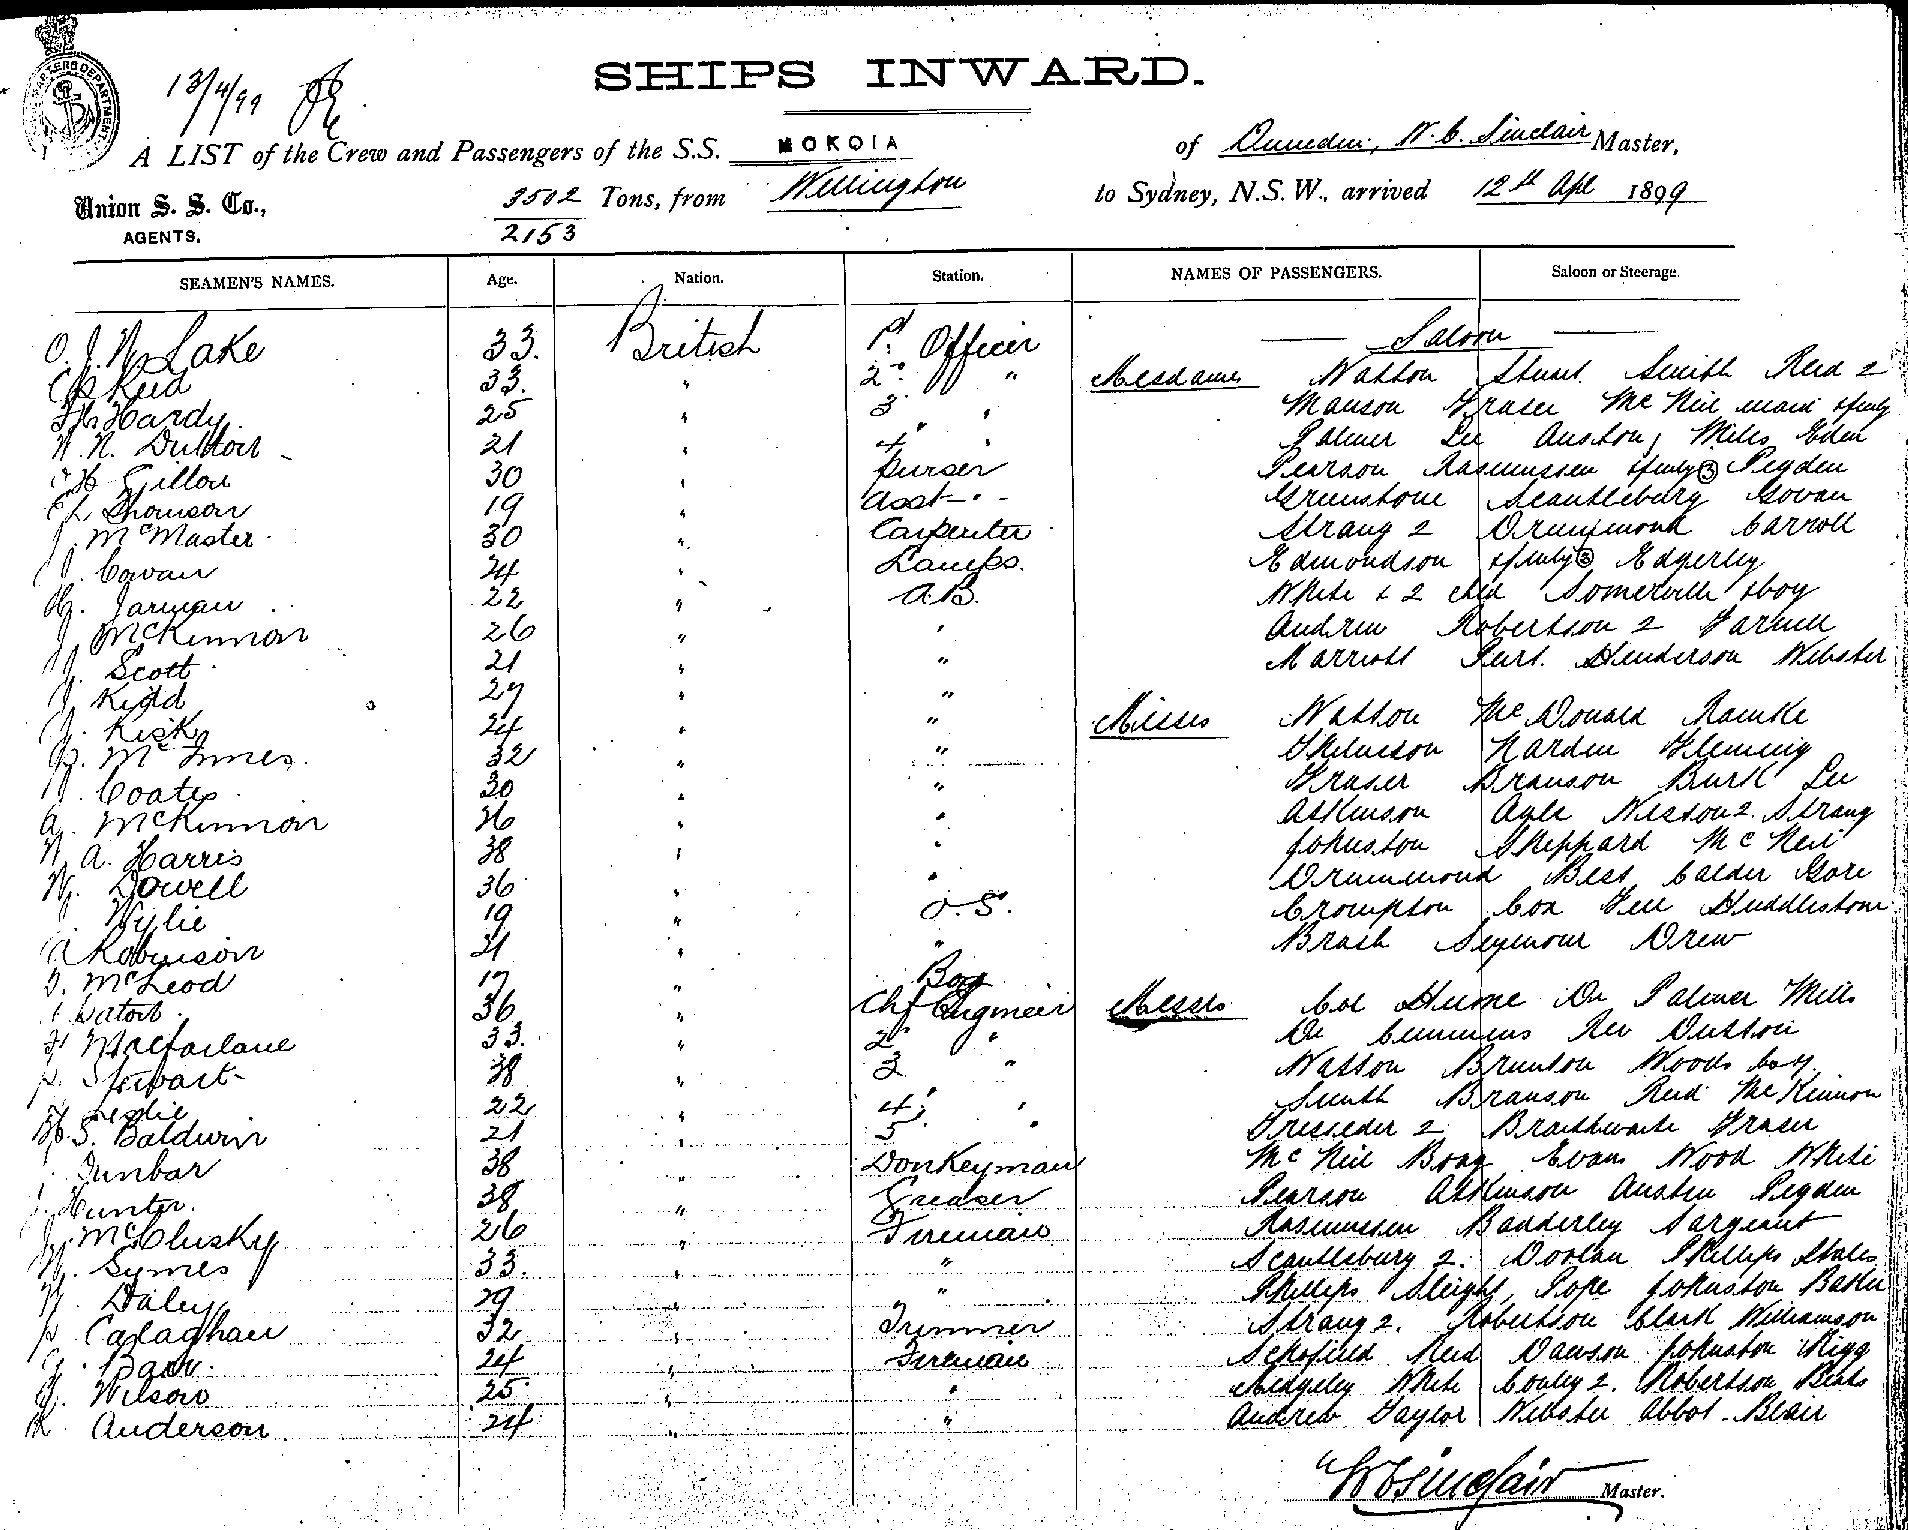 SHIPS INWARD.
13/4/99
A LIST of the Crew and Passengers of the S.S. MOKOIA of Dunedin, W. C. Sinclair Master,
Union S. S. Co., 3502 Tons, from Wellington to Sydney, N.S.W., arrived 12th Apl 1899
AGENTS. 2153
SEAMEN'S NAMES. Age. Nation. Station. NAMES OF PASSENGERS. Saloon or Steerage.
O. J. W. Lake 33. British 1st Officer Saloon
Reid 33. " 2nd " Mesdames Watson Stuart Smith Reid 2
Hardy 25 " 3 " Manson Fraser McNeil maid & fmly
W. N. Dutton 21 " 4 " Palmer Lee Auston, Mills Eden
Gillon 30 " Purser Pearson Rasmussen & fmly 3 Pegden
Thomson 19 " Asst " Greenstone Scantlebury Govan
J. McMaster 30 " Carpenter Strang 2 Drummond Carroll
J. Cowan 24 " Lamps. Edmondson & fmly 3 Edgerley
Jarman 22 " A.B. White & 2 chld Somerville & boy
J. McKinnon 26 " " Andrew Robertson 2 Farnell
J. Scott 21 " " Marriott Henderson Webster
J. Kidd 27 " "
J. Kisk 24 " " Misses Watson McDonald Ramke
McInnes. 32 " " Shelmerson Harden Fleming
Coates 30 " " Fraser Branson Burk Lee
A. McKinnon 26 " " Atkinson Nisson 2. Strang
W. A. Harris 38 " " Johnston Sheppard McNeil
W. Dowell 36 " " Drummond Bess Calder Gore
Wylie 19 " O.S. Crompton Cox Huddlestone
Robinson 21 " " Brash Seymour Drew
McLeod 17 " Boy
36 " Chf Engineer Messrs Col Hume Dr Palmer Mills
Macfarlane 33. " 2 " Dr Cummins Rev Dutton
Stewart 38 " 3 " Watson Brunton Woods boy
Leslie 22 " 4 " Smith Branson Reid McKinnon
S. Baldwin 21 " 5 " Tresseder 2 Braithwaite Fraser
Dunbar 38 " Donkeyman McNeil Boag Evans Wood White
J. Hunter. 38 " Greaser Pearson Atkinson Austin Pegden
J. McClusky 26 " Fireman Rasmussen Badderley Sargeant
W. Symes 33. " " Scantlebury 2. Doolan Phillips
Daley 29 " " Phillips Sleight, Pope Johnston Baker
Calaghan 32 " Trimmer Strang 2. Robertson Clark Williamson
Barr. 24 " Fireman Schofield Reid Dawson Johnston Rigg
J. Wilson 25 " " Medgeley White Conley 2. Robertson
Anderson 24 " " Andrew Taylor Webster Abbot Blair
W C Sinclair Master.